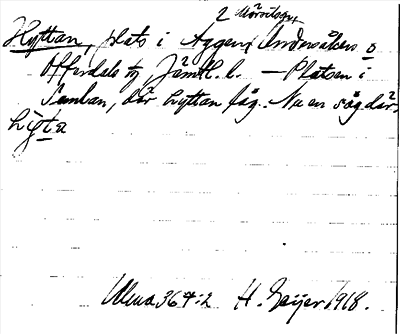 2 Mörsils sn,
Hyttan, plats i Äggen, Undersåkers o
Offerdals tg, Jämtl. l. — Platsen i
Semlan, där hyttan låg. Nu en såg där.
hỳt:a
Ulma 367:2 H. Geijer 1918.